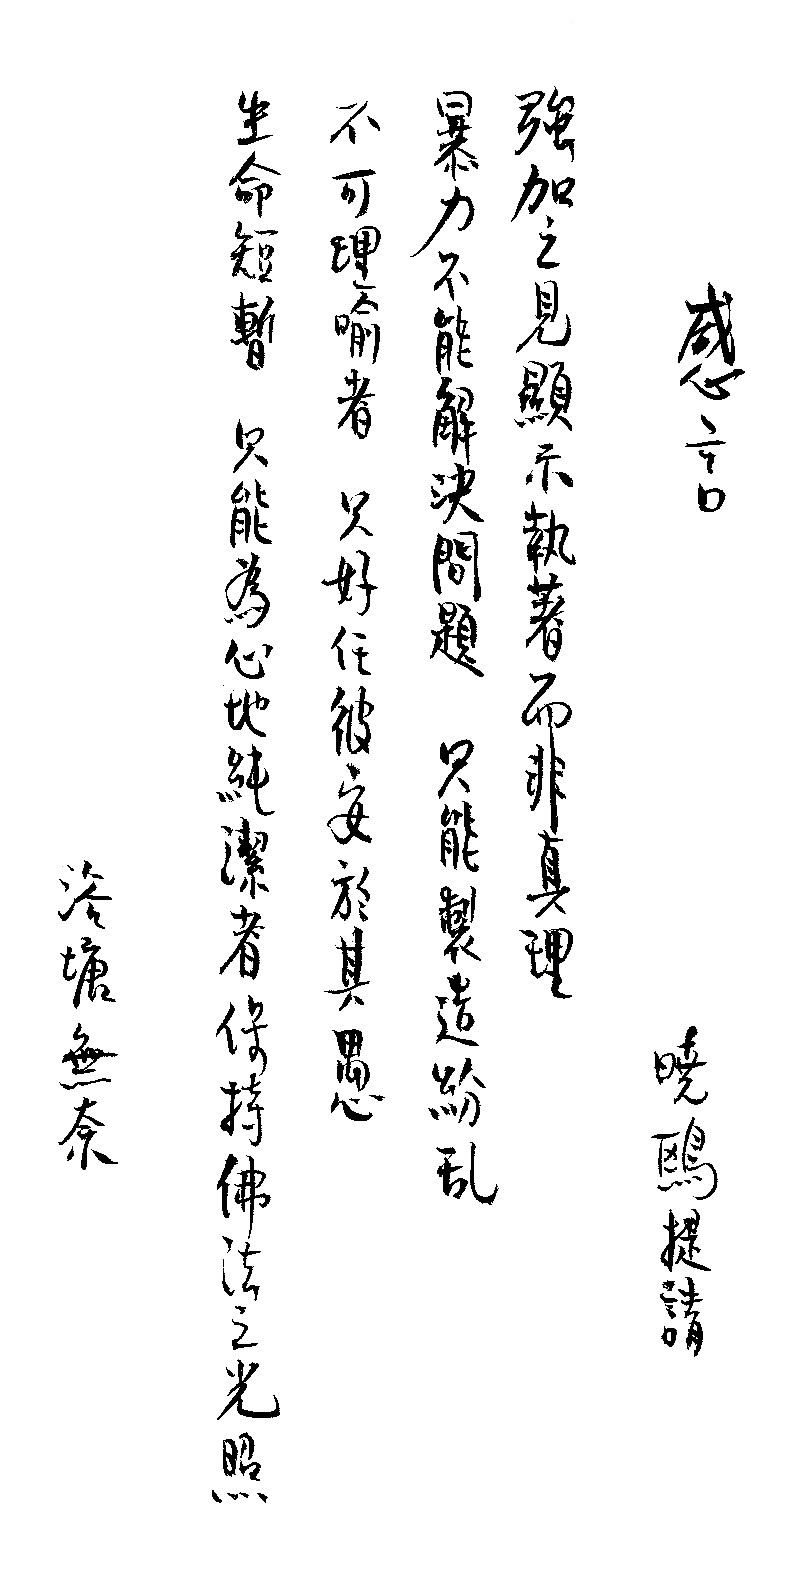 感言
曉鷗提請
強加之見顯示執著而非真理
暴力不能解決問題 只能製造紛乱
不可理喻者 只好任彼安於其愚
生命短暫 只能為心地純潔者保持佛法之光照
塘無奈